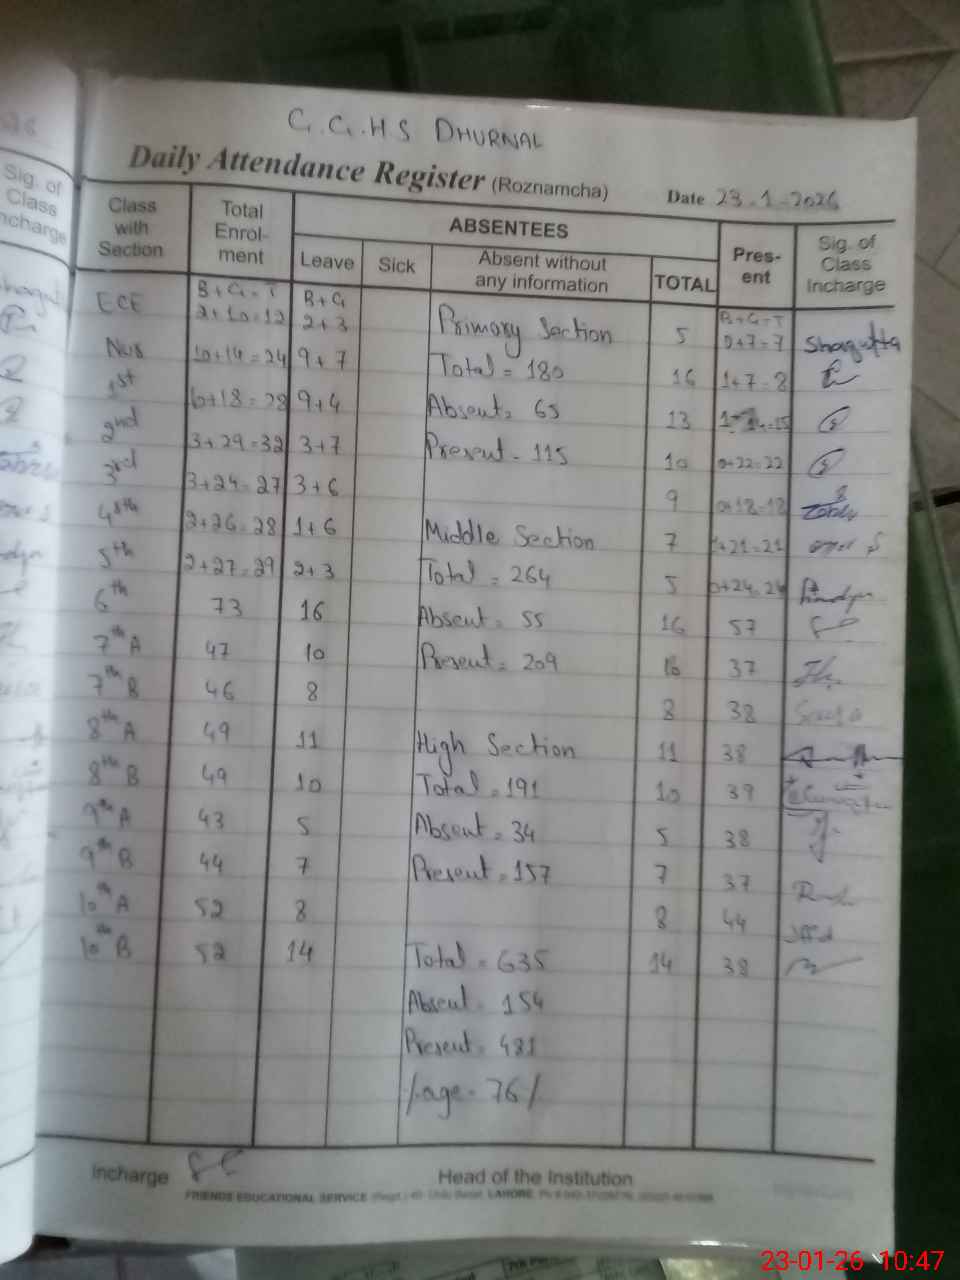 G.G.H.S DHURNAL
Daily Attendance Register (Roznamcha) Date 23-1-2026
Class with Section Total Enrolment ABSENTEES Present Sig. of Class Incharge
Leave Sick Absent without any information TOTAL
B+G=T B+G B+G=T
ECE 2+10=12 2+3 Primary Section 5 0+7=7 Shagufta
Nur 10+14=24 9+7 Total = 180 16 1+7=8
1st 10+18=28 9+4 Absent= 65 13 1+14=15
2nd 3+29=32 3+7 Present - 115 10 0+22=22
3rd 3+24=27 3+6 9 0+18=18
4th 2+26=28 1+6 Middle Section 7 1+21=21
5th 2+27=29 2+3 Total = 264 5 0+24=24
6th 73 16 Absent= 55 16 57
7th A 47 10 Present= 209 10 37
7th B 46 8 8 38
8th A 49 11 High Section 11 38
8th B 49 10 Total = 191 10 39
9th A 43 5 Absent = 34 5 38
9th B 44 7 Present = 157 7 37
10th A 52 8 8 44
10th B 52 14 Total = 635 14 38
Absent = 154
Present = 481
%age - 76%
Incharge Head of the Institution
FRIENDS EDUCATIONAL SERVICE LAHORE
Sig. of
Class
Incharge
23-01-26 10:47